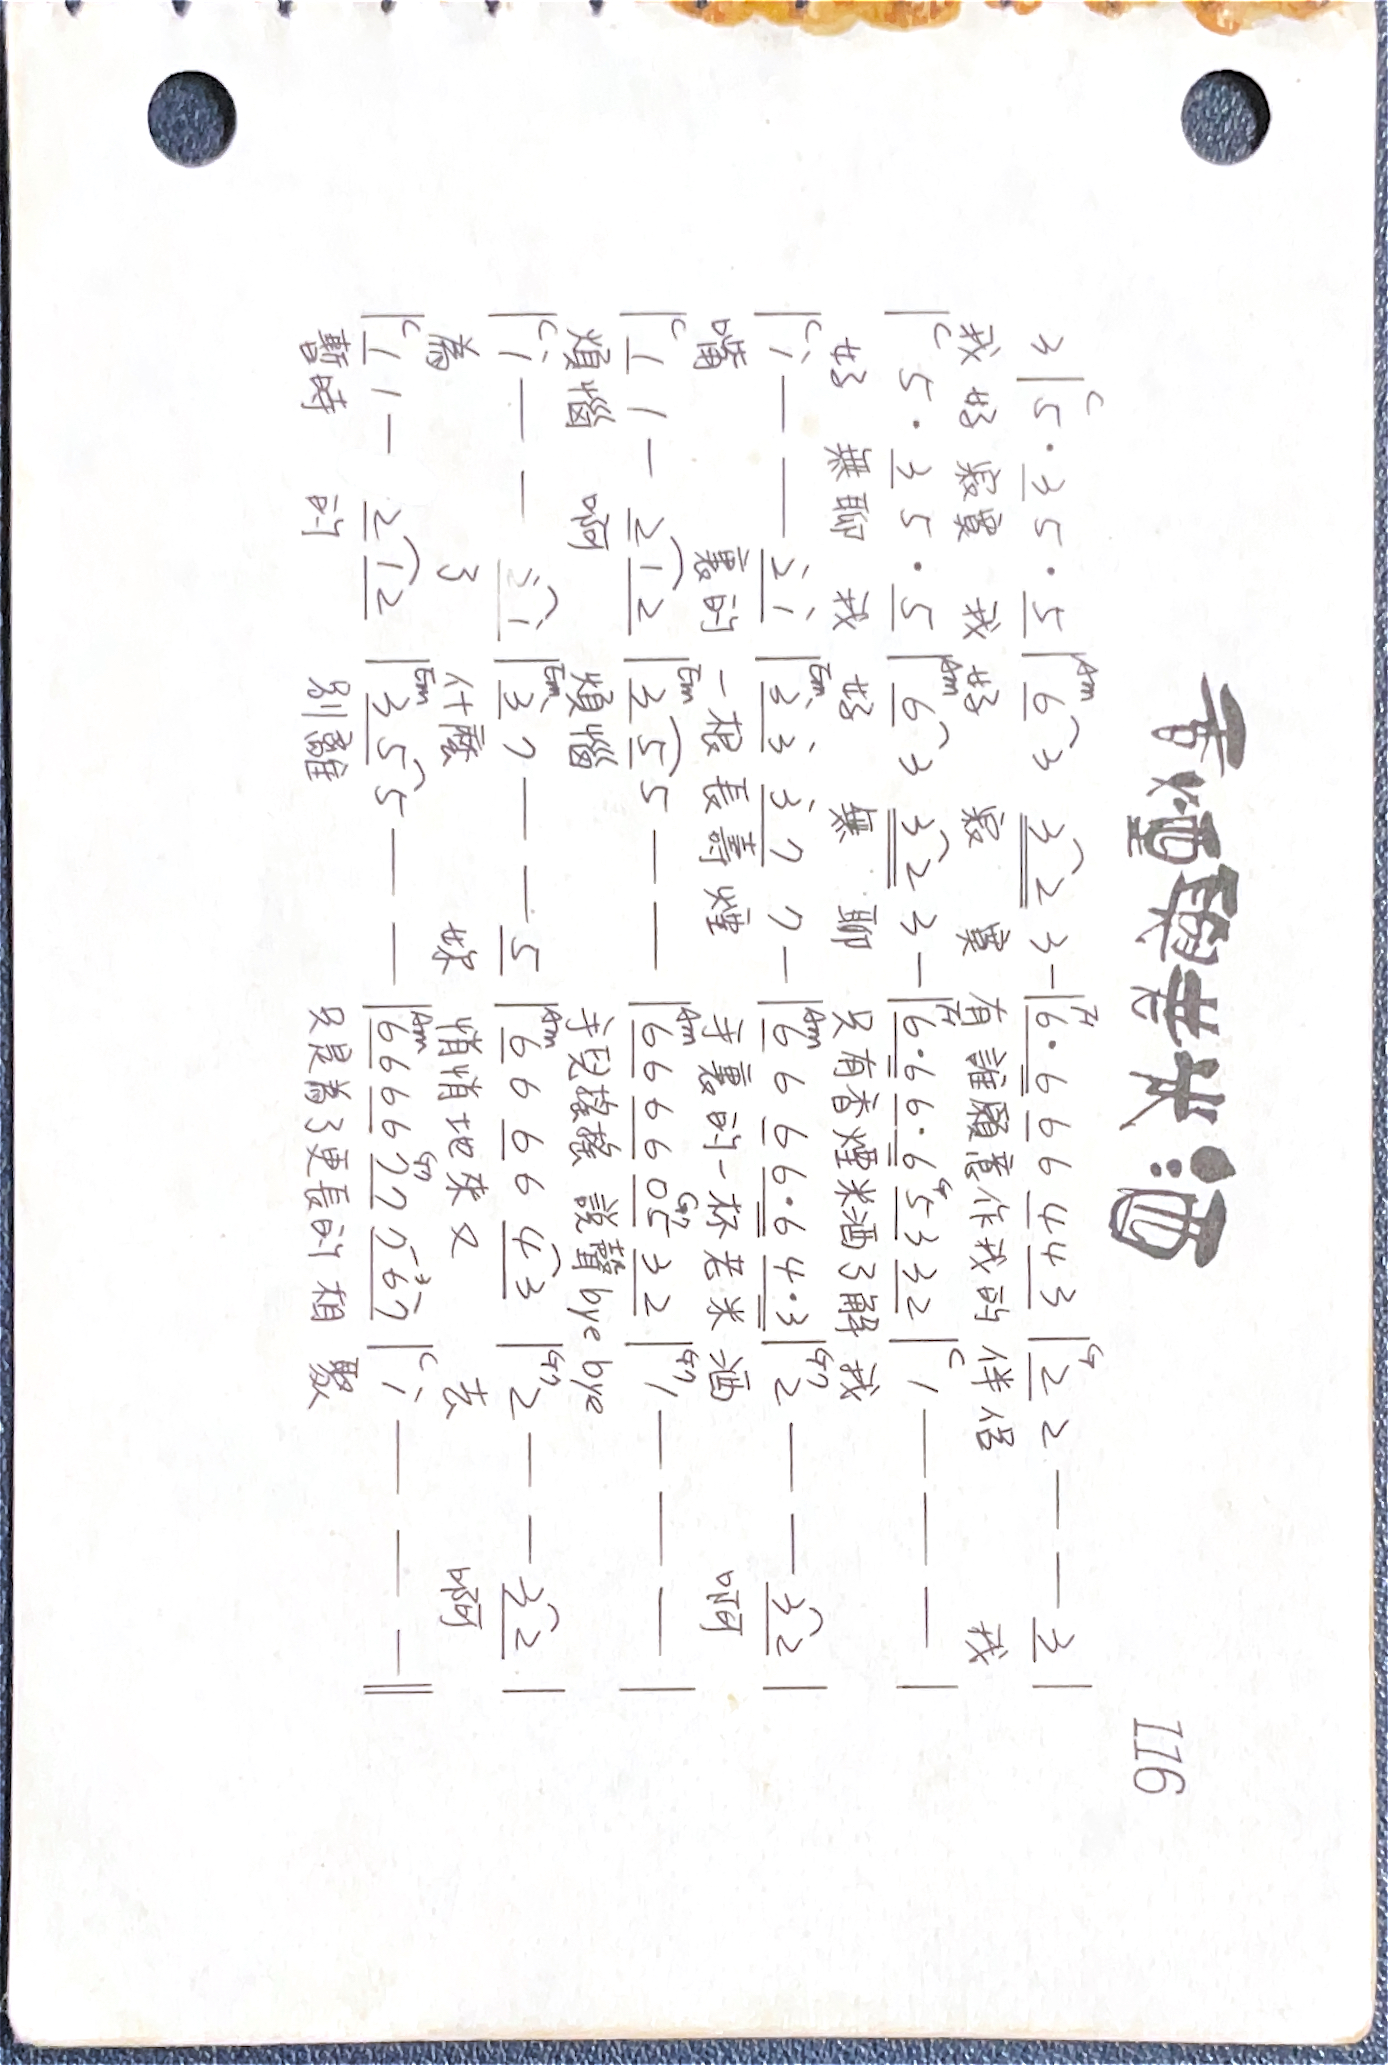 香煙與老米酒
116
C Am F G
3 | 5 · 3 5 · 5 | 6 3 3 2 3 – | 6 · 6 6 6 4 4 3 | 2 2 — — 3 |
我好寂寞 我好 寂 寞 有誰願意作我的伴侶 我
C Am F G C
| 5 · 3 5 · 5 | 6 3 3 2 3 – | 6 · 6 6 · 6 5 3 3 2 | 1 — — — |
好 無聊 我 好 無 聊 只有香煙米酒了解 我
C Em Am G7
| i — — 2̇ i | 3̇ 3̇ 3̇ 7 7 – | 6 6 6 6 · 6 4 · 3 | 2 — — 3 2 |
嘴 裏的 一根長壽煙 手裏的一杯老米酒 啊
C Em Am G7 G7
| 1 1 – 2 1 2 | 3 5 5 — — | 6 6 6 6 0 5 3 2 | 1 — — — |
煩惱 啊 煩惱 手兒搖搖 說聲bye bye
C Em Am G7
| i — — 2̇ i | 3̇ 7 — — 5 | 6 6 6 6 4 3 | 2 — — 3 2 |
為 了 什麼 妳 悄悄地來又 去 啊
C Em Am G7 3 C
| 1 1 – 2 1 2 | 3 5 5 — — | 6 6 6 6 7 7 7 6 7 | i — — — ‖
暫時 的 別離 只是為了更長的相 聚